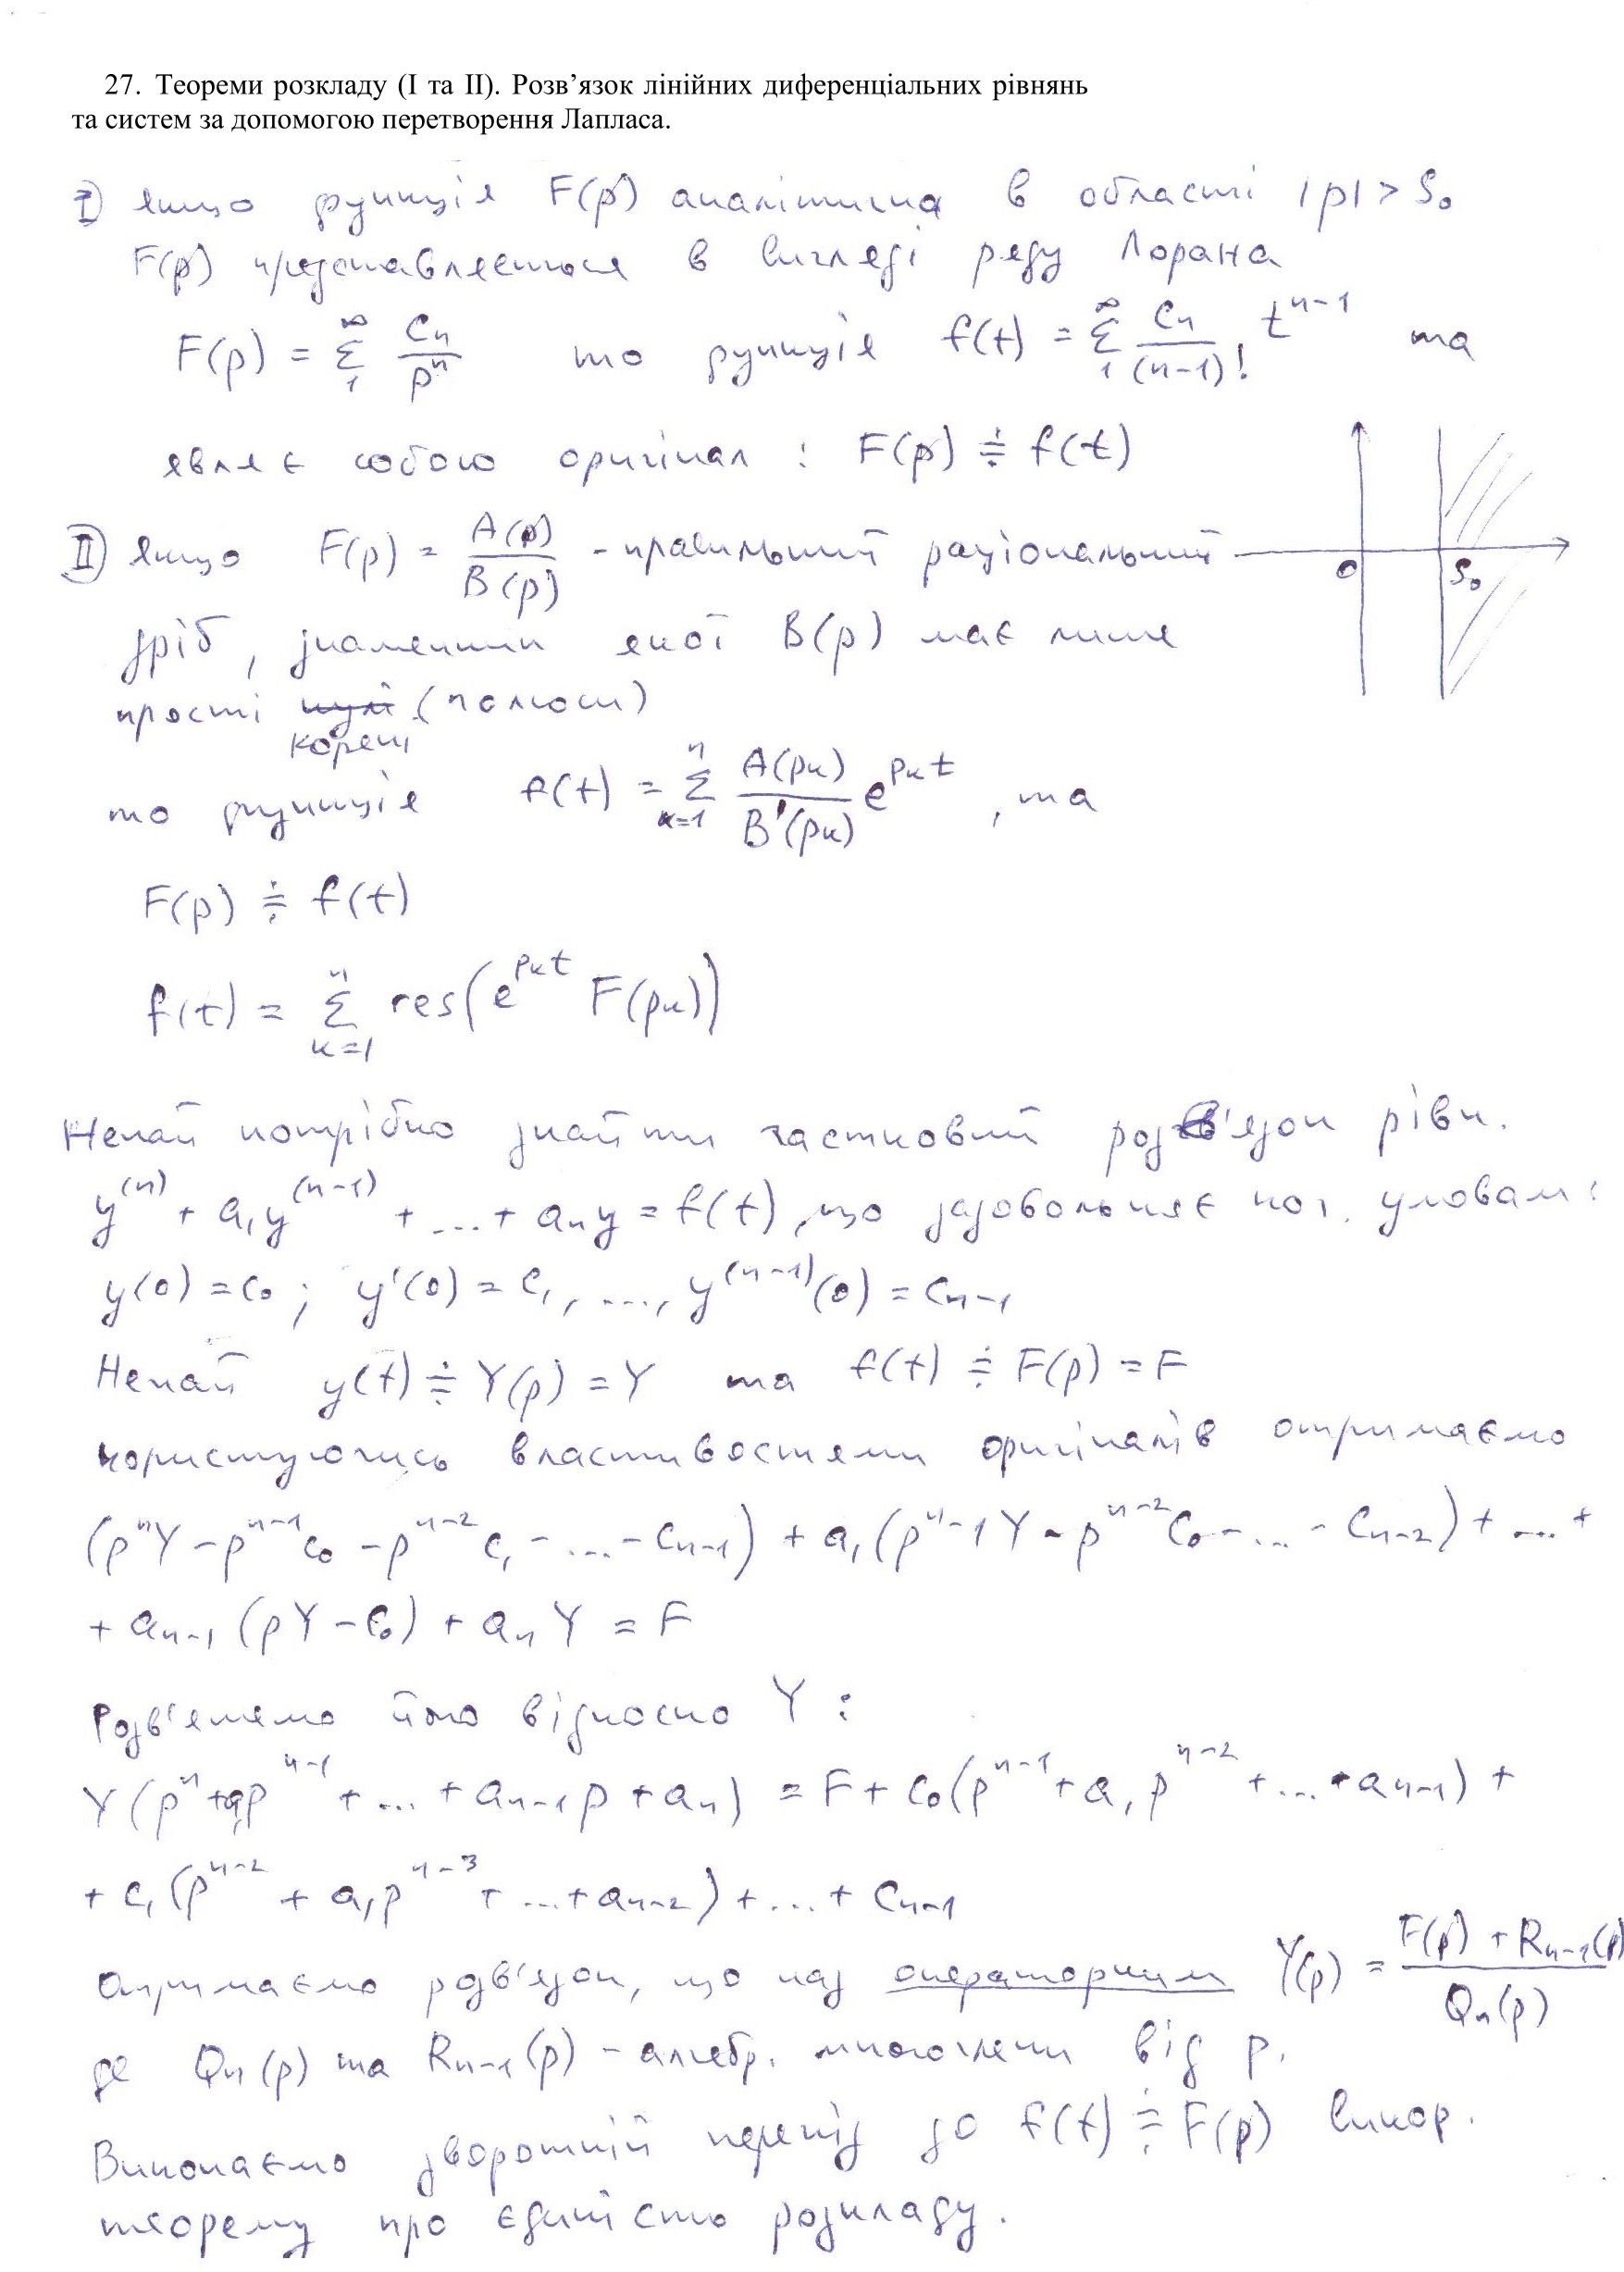 27. Теореми розкладу (I та II). Розв’язок лінійних диференціальних рівнянь
та систем за допомогою перетворення Лапласа.
I) якщо функція F(p) аналітична в області |p| > S₀
F(p) представляється в вигляді ряду Лорана
F(p) = ∑₁^∞ cₙ/pⁿ то функція f(t) = ∑₁^∞ cₙ/(n-1)! tⁿ⁻¹ та
являє собою оригінал : F(p) ≓ f(t)
II) якщо F(p) = A(p)/B(p) - правильний раціональний
дріб, знаменник якої B(p) має лише
прості нулі (полюси)
корені
то функція f(t) = ∑ₖ₌₁ⁿ A(pₖ)/B'(pₖ) e^{pₖt}, та
F(p) ≓ f(t)
f(t) = ∑ₖ₌₁ⁿ res(e^{pₖt} F(pₖ))
0 S₀
Нехай потрібно знайти частковий розв'язок рівн.
y⁽ⁿ⁾ + a₁y⁽ⁿ⁻¹⁾ + ... + aₙy = f(t), що задовольняє поч. умовам:
y(0) = c₀; y'(0) = c₁, ..., y⁽ⁿ⁻¹⁾(0) = cₙ₋₁
Нехай y(t) ≓ Y(p) = Y та f(t) ≓ F(p) = F
користуючись властивостями оригіналів отримаємо
(pⁿY - pⁿ⁻¹c₀ - pⁿ⁻²c₁ - ... - cₙ₋₁) + a₁(pⁿ⁻¹Y - pⁿ⁻²c₀ - ... - cₙ₋₂) + ... +
+ aₙ₋₁(pY - c₀) + aₙY = F
Розв'яжемо його відносно Y :
Y(pⁿ + a₁pⁿ⁻¹ + ... + aₙ₋₁p + aₙ) = F + c₀(pⁿ⁻¹ + a₁pⁿ⁻² + ... + aₙ₋₁) +
+ c₁(pⁿ⁻² + a₁pⁿ⁻³ + ... + aₙ₋₂) + ... + cₙ₋₁
Отримаємо розв'язок, що наз операторним Y(p) = (F(p) + Rₙ₋₁(p))/Qₙ(p)
де Qₙ(p) та Rₙ₋₁(p) - алгебр. многочлени від p.
Виконаємо зворотній перехід до f(t) ≓ F(p) викор.
теорему про єдиність розкладу.